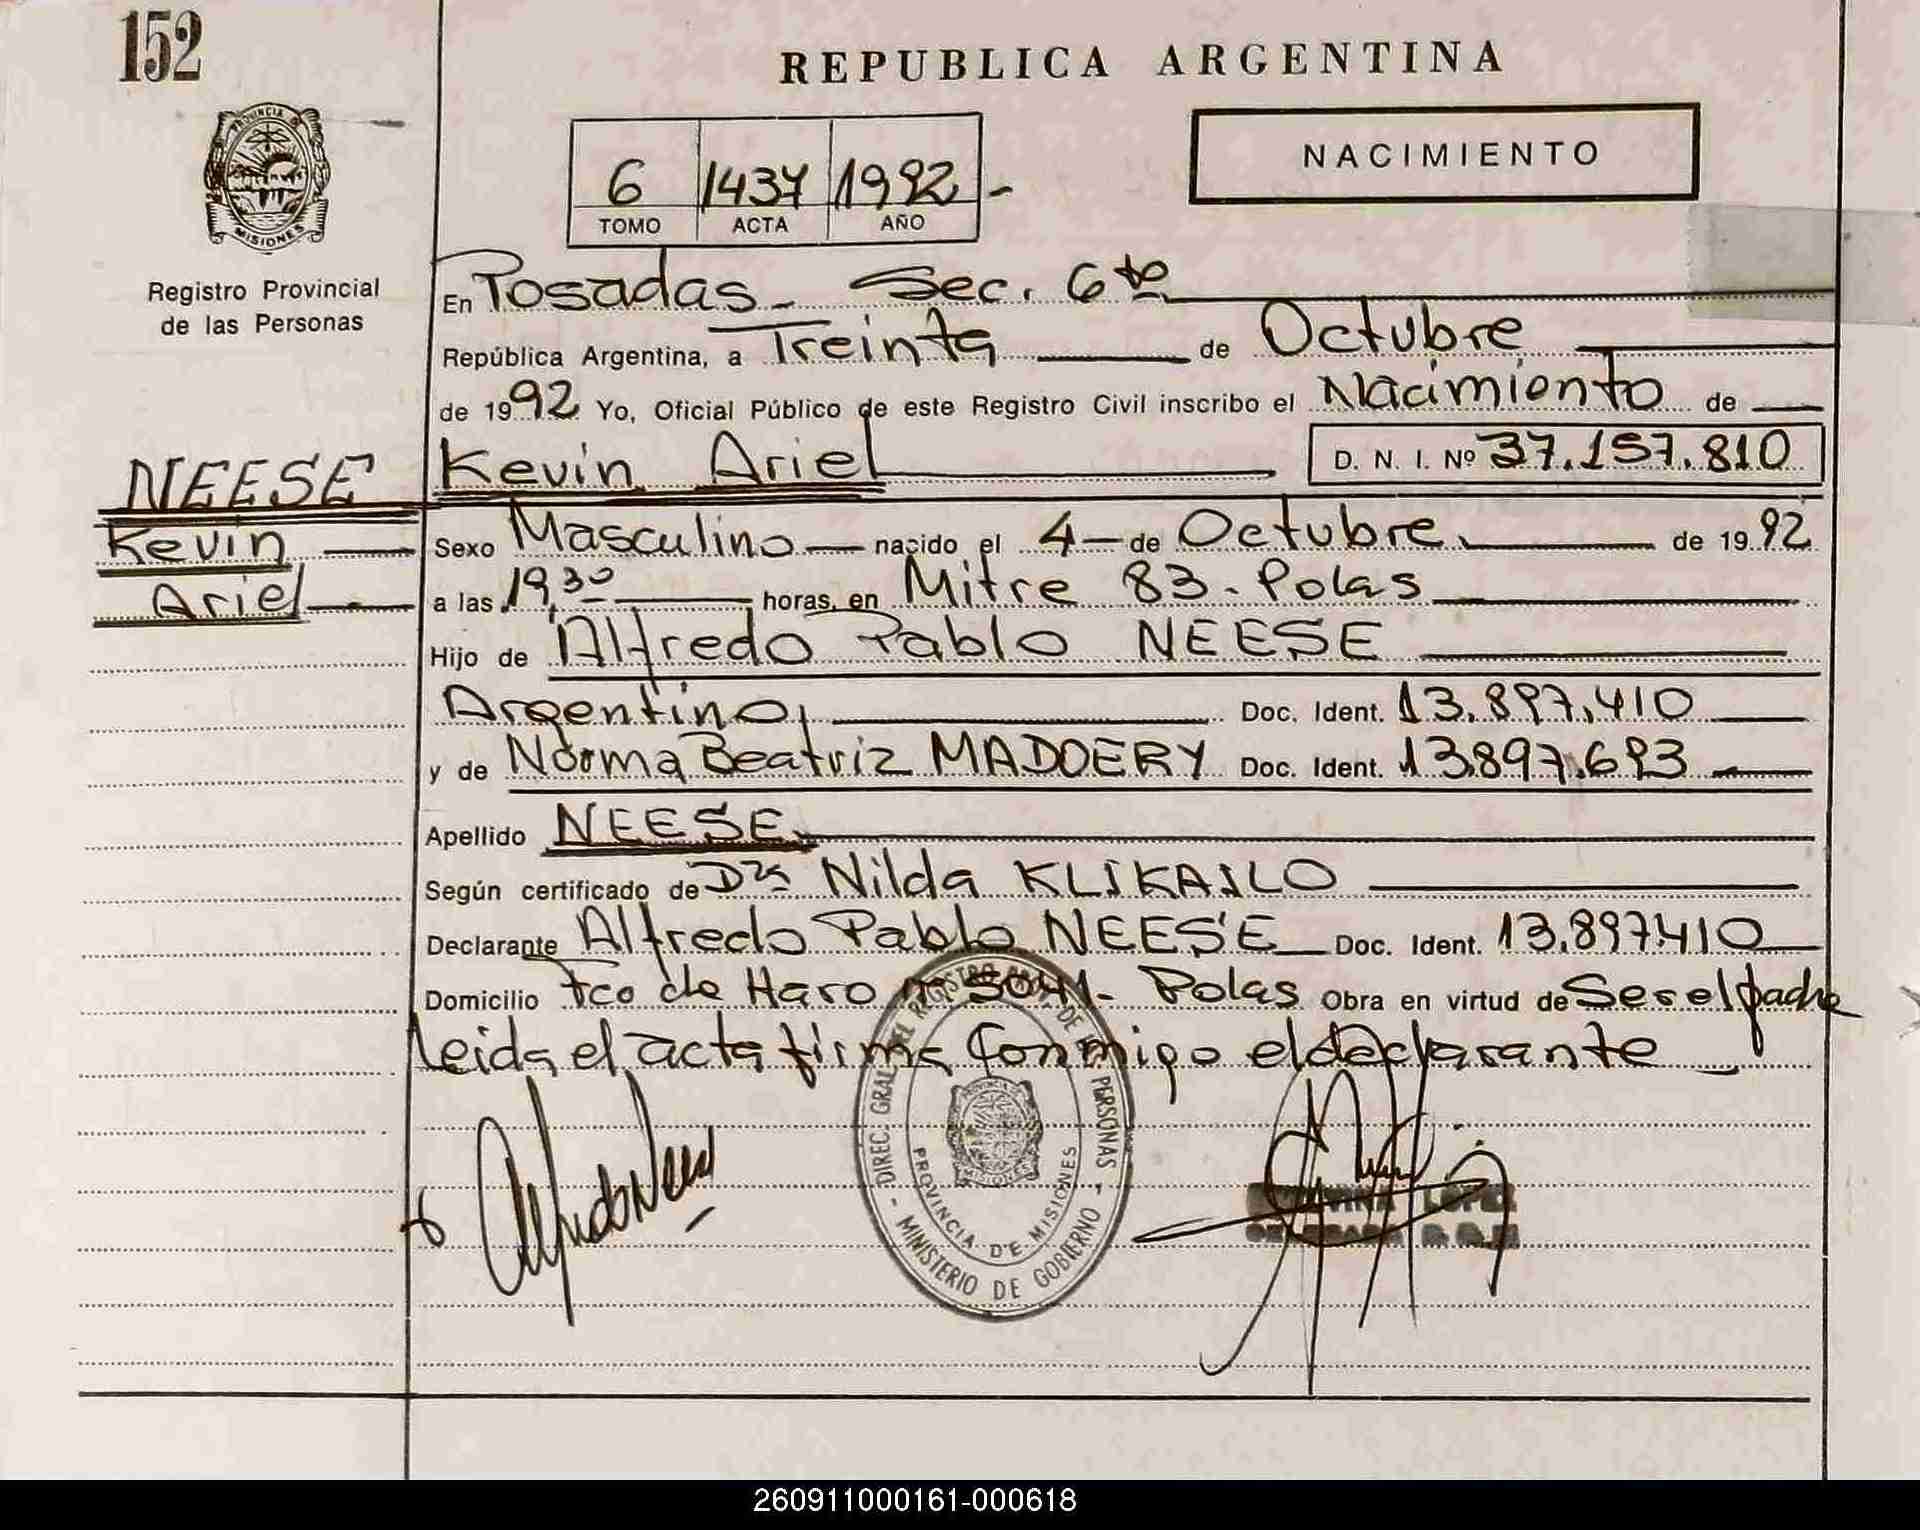 152
REPUBLICA ARGENTINA
PROVINCIA DE
MISIONES
Registro Provincial
de las Personas
6 1437 1992 -
TOMO ACTA AÑO
NACIMIENTO
En Posadas - Sec. 6ta
República Argentina, a Treinta de Octubre
de 1992 Yo, Oficial Público de este Registro Civil inscribo el Nacimiento de
Kevin Ariel D. N. I. Nº 37.157.810
NEESE
Kevin
Ariel
Sexo Masculino nacido el 4 - de Octubre de 1992
a las 19,30 horas, en Mitre 83 - Pdas
Hijo de Alfredo Pablo NEESE
Argentino, Doc. Ident. 13.897.410
y de Norma Beatriz MADOERY Doc. Ident. 13.897.693
Apellido NEESE
Según certificado de Dra Nilda KLIKAILO
Declarante Alfredo Pablo NEESE Doc. Ident. 13.897.410
Domicilio Fco de Haro nº 5041 - Pdas Obra en virtud de Ser el padre
Leida el acta firma conmigo el declarante
Alfredo Neese
DIREC. GRAL. DEL REGISTRO PROV. DE LAS PERSONAS
MINISTERIO DE GOBIERNO
PROVINCIA DE MISIONES
LOPEZ
260911000161-000618